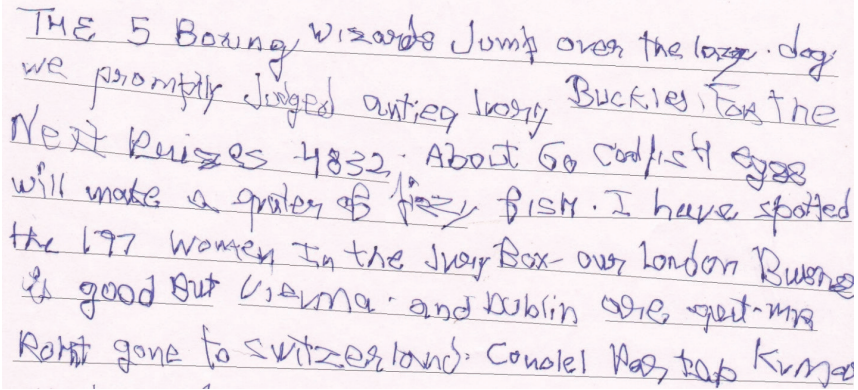 THE 5 Boxung Wizards Jump over the lazy. dog.
we promptly Judged antieq Ivory Buckles, For the
Next Prizes 4832. About 60 Codfish eggs
will make a quater of fizzy fish. I have spotted
the 197 Women In the Jury Box- our London
is good But Vienna. and Dublin are
gone to Switzerland.